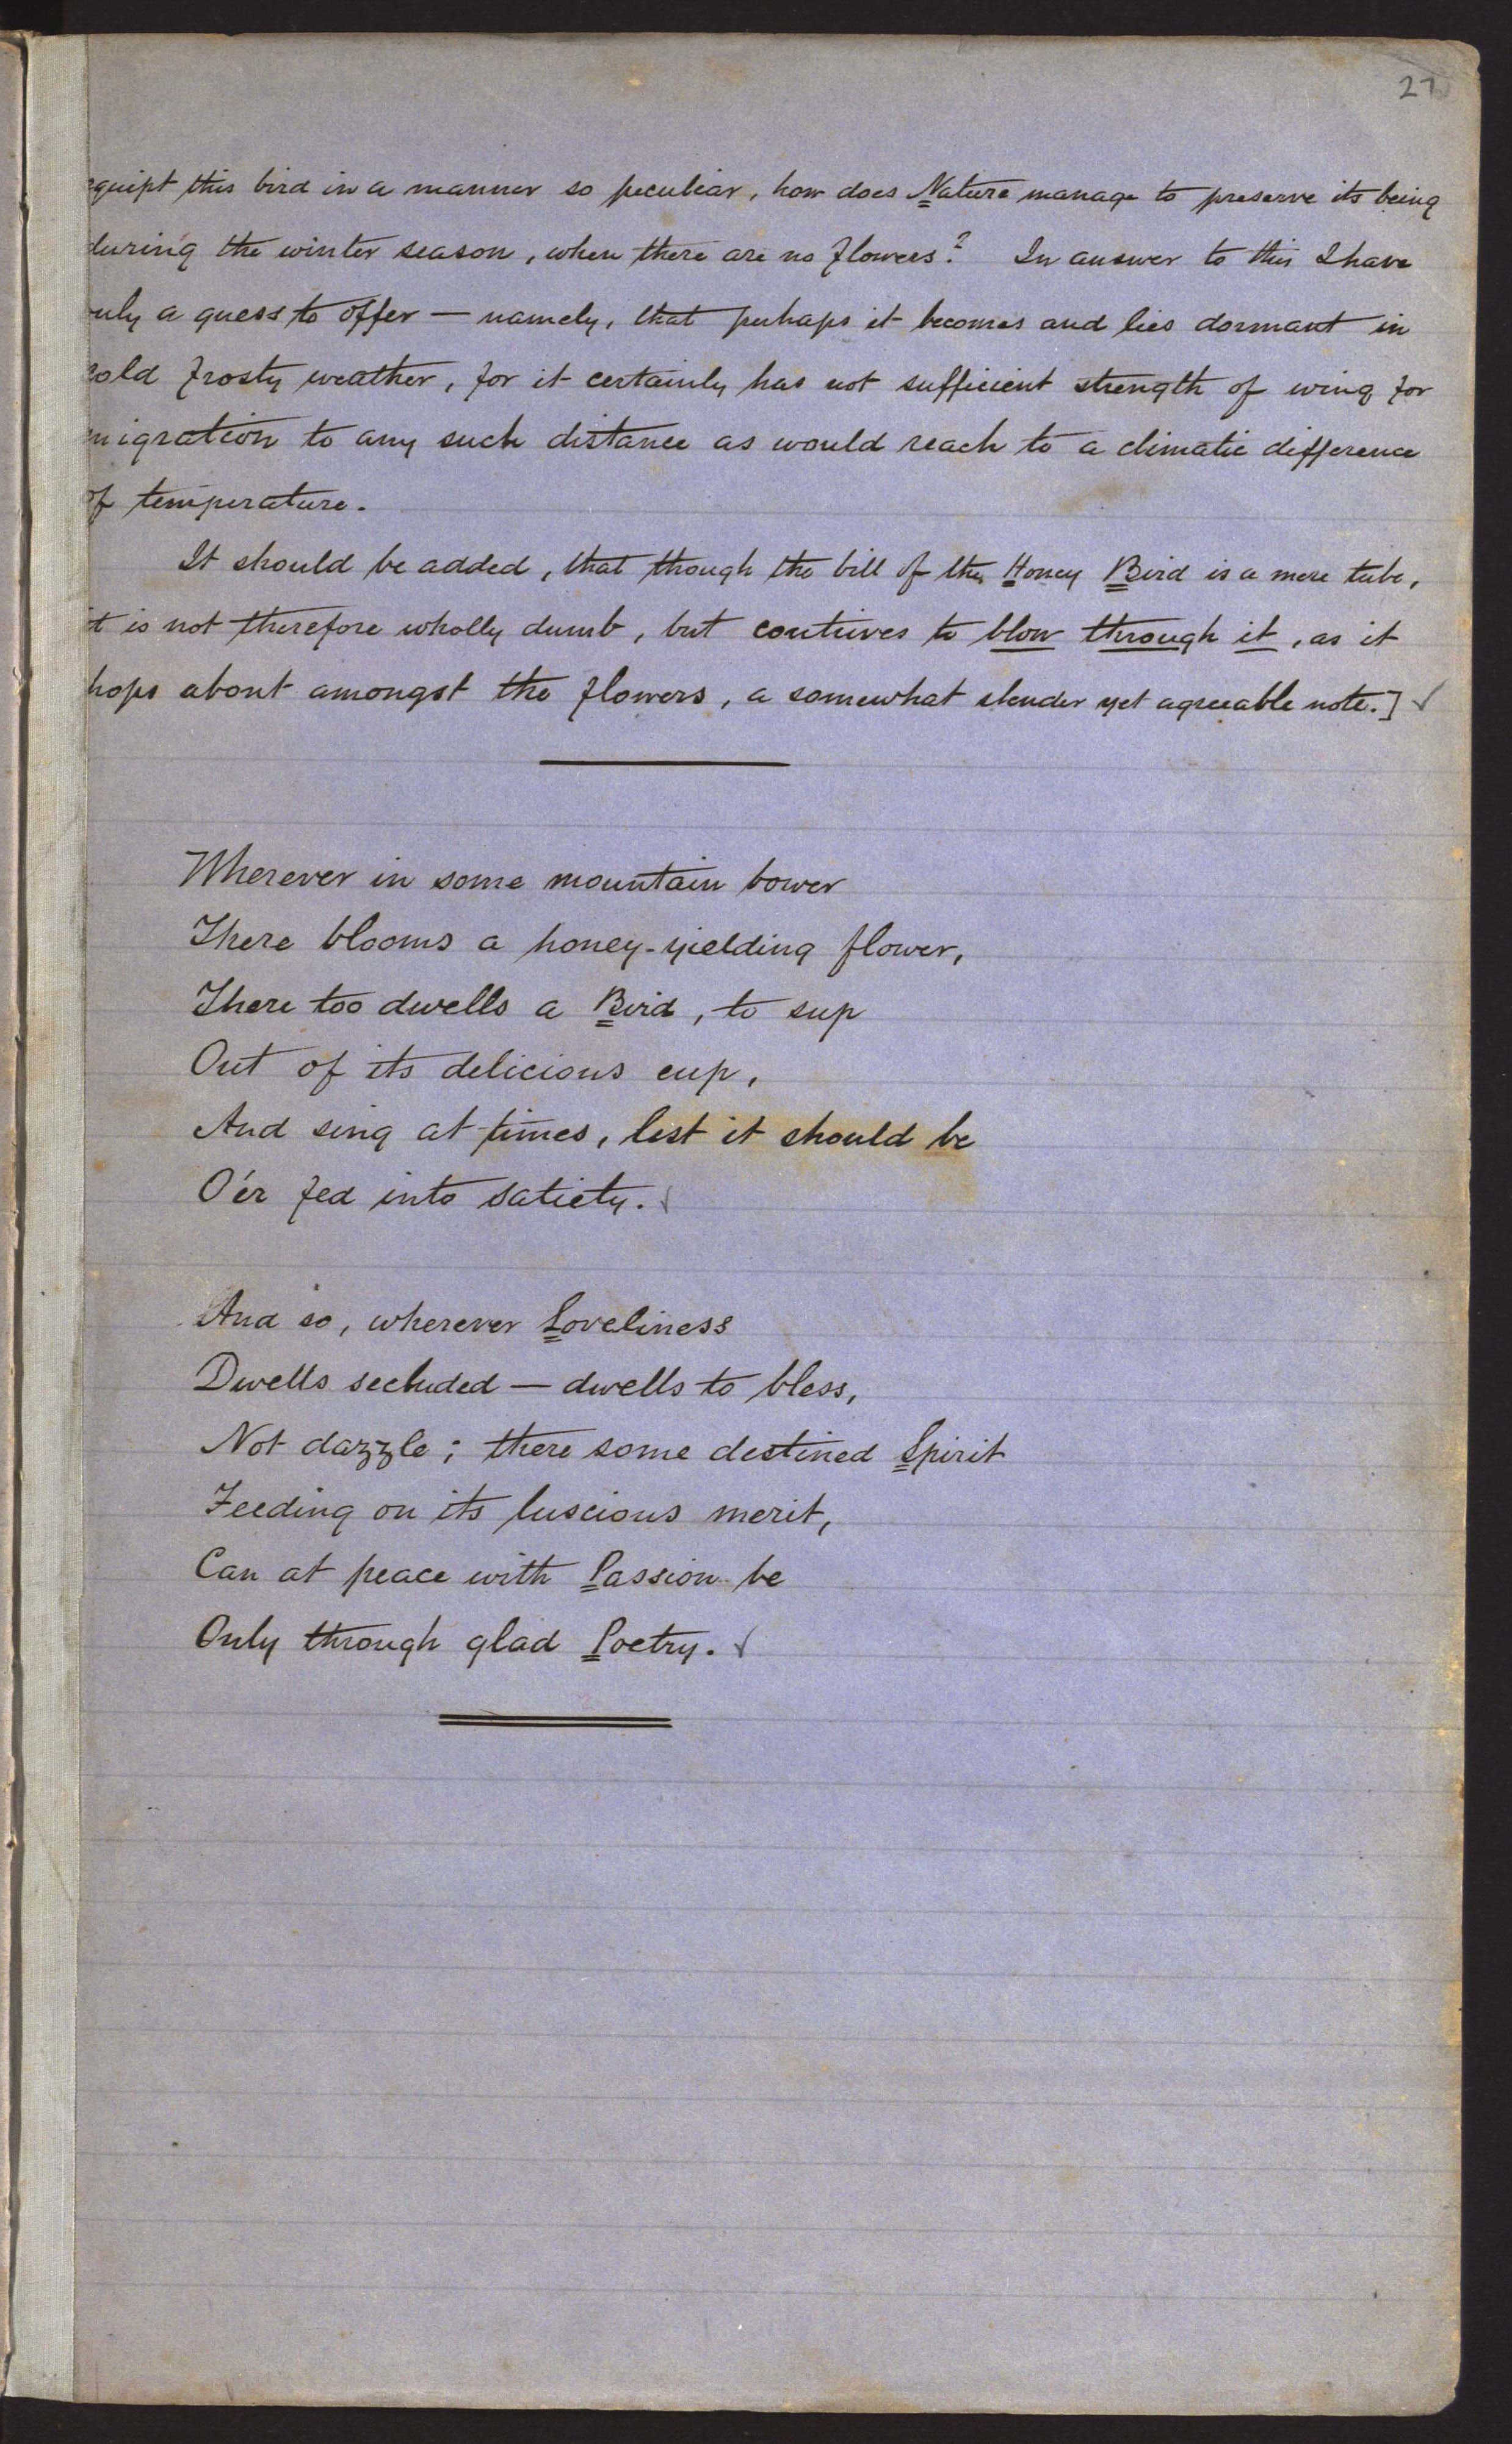 27
equipt this bird in a manner so peculiar, how does Nature manage to preserve its being
during the winter season, when there are no flowers? In answer to this I have
only a guess to offer — namely, that perhaps it becomes and lies dormant in
cold frosty weather, for it certainly has not sufficient strength of wing for
migration to any such distance as would reach to a climatic difference
of temperature.
It should be added, that though the bill of the Honey Bird is a mere tube,
it is not therefore wholly dumb, but contrives to blow through it, as it
hops about amongst the flowers, a somewhat slender yet agreeable note.]
Wherever in some mountain bower
There blooms a honey-yielding flower,
There too dwells a Bird, to sup
Out of its delicious cup,
And sing at times, lest it should be
O'er fed into satiety.
And so, wherever Loveliness
Dwells secluded — dwells to bless,
Not dazzle; there some destined Spirit
Feeding on its luscious merit,
Can at peace with Passion be
Only through glad Poetry.